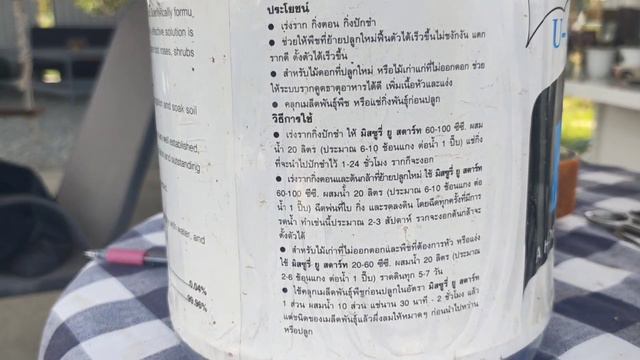 entifically formu
effective solution is
roses, shrubs
and soak soil
well established,
and outstanding
water, and
0.04%
99.96%
U-
ประโยชน์
● เร่งราก กิ่งตอน กิ่งปักชำ
● ช่วยให้พืชที่ย้ายปลูกใหม่ฟื้นตัวได้เร็วขึ้นไม่ชงักงัน แตก
รากดี ตั้งตัวได้เร็วขึ้น
● สำหรับไม้ดอกที่ปลูกใหม่ หรือไม้เก่าแก่ที่ไม่ออกดอก ช่วย
ให้ระบบรากดูดธาตุอาหารได้ดี เพิ่มเนื้อหัวและแง่ง
● คลุกเมล็ดพันธุ์พืช หรือแช่กิ่งพันธุ์ก่อนปลูก
วิธีการใช้
● เร่งรากกิ่งปักชำ ให้ มิสซูรี่ ยู สตาร์ท 60-100 ซีซี. ผสม
น้ำ 20 ลิตร (ประมาณ 6-10 ช้อนแกง ต่อน้ำ 1 ปี๊บ) แช่กิ่ง
ที่จะนำไปปักชำไว้ 1-24 ชั่วโมง รากก็จะงอก
● เร่งรากกิ่งตอนและต้นกล้าที่ย้ายปลูกใหม่ ใช้ มิสซูรี่ ยู สตาร์ท
60-100 ซีซี. ผสมน้ำ 20 ลิตร (ประมาณ 6-10 ช้อนแกง ต่อ
น้ำ 1 ปี๊บ) ฉีดพ่นที่ใบ กิ่ง และรดลงดิน โดยฉีดทุกครั้งที่มีการ
รดน้ำ ทำเช่นนี้ประมาณ 2-3 สัปดาห์ รากจะงอกต้นกล้าจะ
ตั้งตัวได้
● สำหรับไม้เก่าที่ไม่ออกดอกและพืชที่ต้องการหัว หรือแง่ง
ใช้ มิสซูรี่ ยู สตาร์ท 20-60 ซีซี. ผสมน้ำ 20 ลิตร (ประมาณ
2-6 ช้อนแกง ต่อน้ำ 1 ปี๊บ) ราดดินทุก 5-7 วัน
● ใช้คลุกเมล็ดพันธุ์พืชก่อนปลูกในอัตรา มิสซูรี่ ยู สตาร์ท
1 ส่วน ผสมน้ำ 10 ส่วน แช่นาน 30 นาที - 2 ชั่วโมง แล้ว
แต่ชนิดของเมล็ดพันธุ์แล้วผึ่งลมให้หมาดๆ ก่อนนำไปหว่าน
หรือปลูก